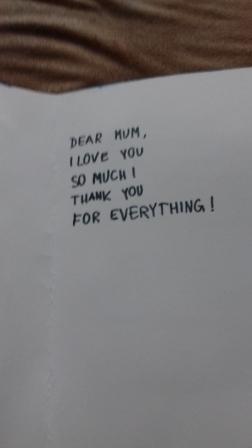 DEAR MUM,
I LOVE YOU
SO MUCH!
THANK YOU
FOR EVERYTHING!